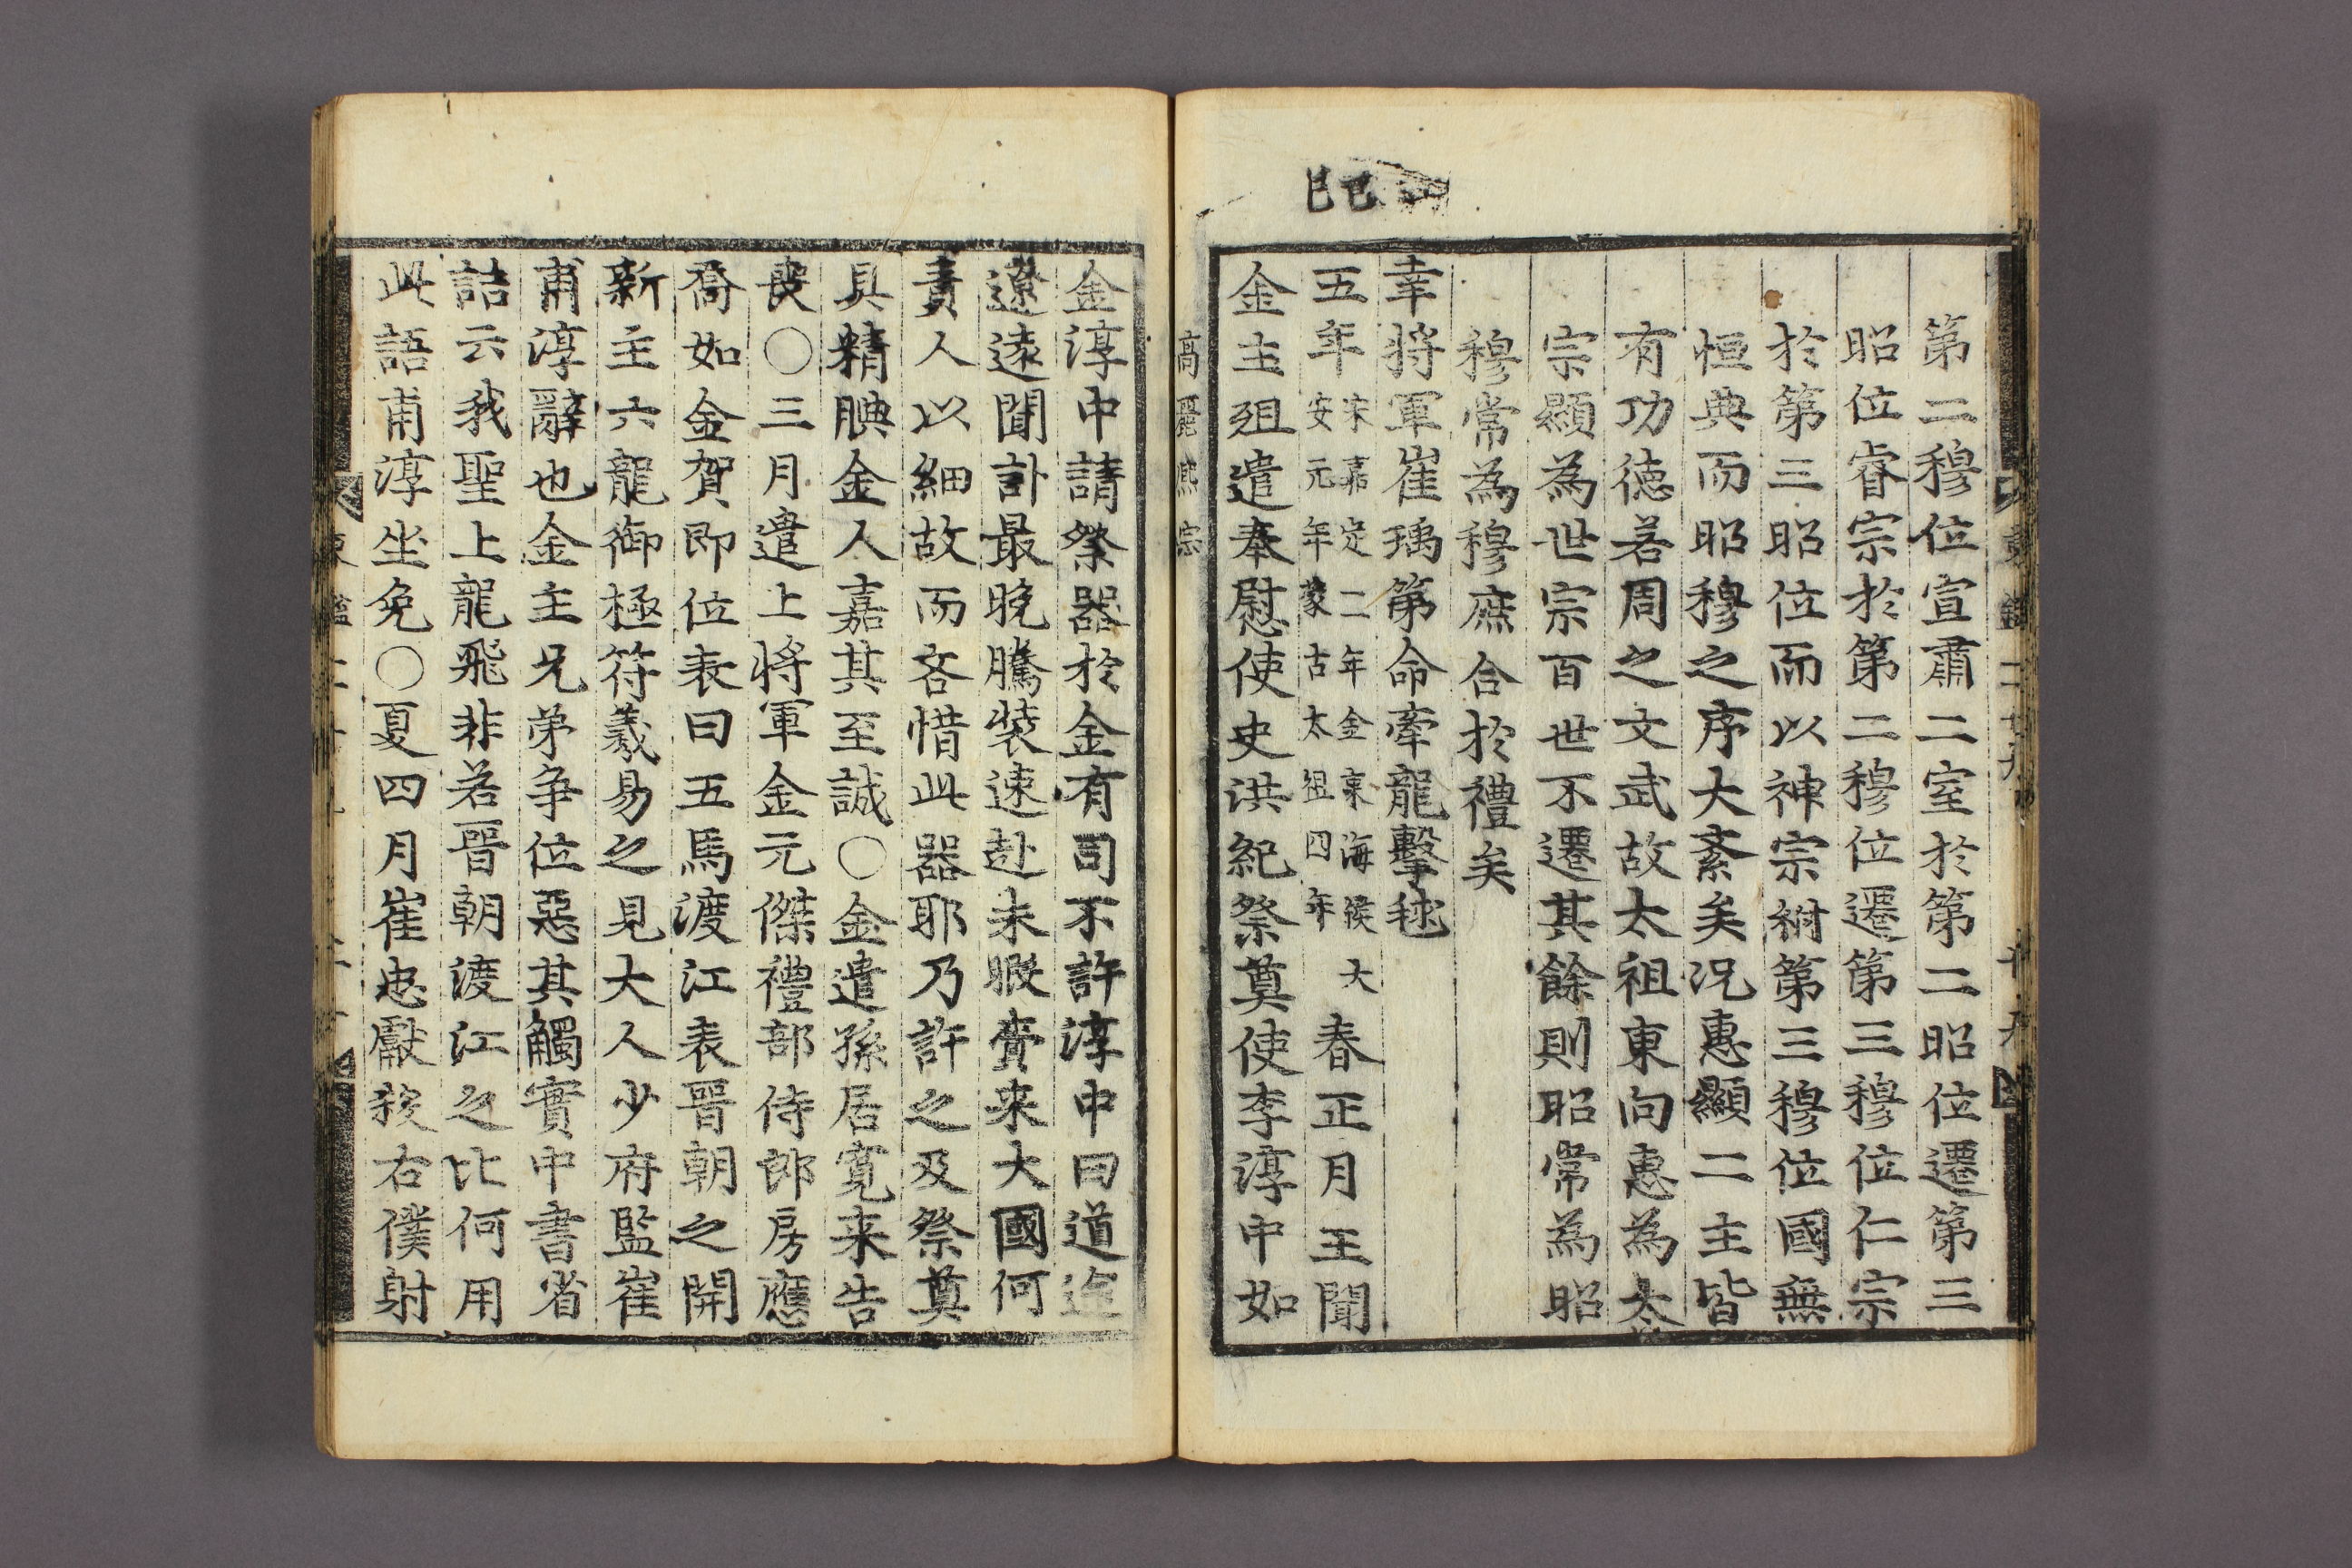 第二穆位宣肅二室於第二昭位遷第三
昭位睿宗於第二穆位遷第三穆位仁宗
於第三昭位而以神宗祔第三穆位國無
恒典而昭穆之序大紊矣况惠顯二主皆
有功德若周之文武故太祖東向惠為太
宗顯為世宗百世不遷其餘則昭常為昭
穆常為穆庶合於禮矣
幸將軍崔瑀第命牽龍擊毬
己巳
五年宋嘉定二年金東海侯大安元年蒙古太祖四年春正月王聞
金主殂遣奉慰使史洪紀祭奠使李淳中如
高麗熙宗
金淳中請祭器於金有司不許淳中曰道途
遼遠聞訃最晚騰裝速赴未暇賫来大國何
責人以細故而吝惜此器耶乃許之及祭奠
具精腆金人嘉其至誠〇金遣孫居寬来告
喪〇三月遣上將軍金元傑禮部侍郎房應
喬如金賀即位表曰五馬渡江表晋朝之開
新主六龍御極符羲易之見大人少府監崔
甫淳辭也金主兄弟争位惡其觸實中書省
詰云我聖上龍飛非若晋朝渡江之比何用
此語甫淳坐免〇夏四月崔忠獻殺右僕射